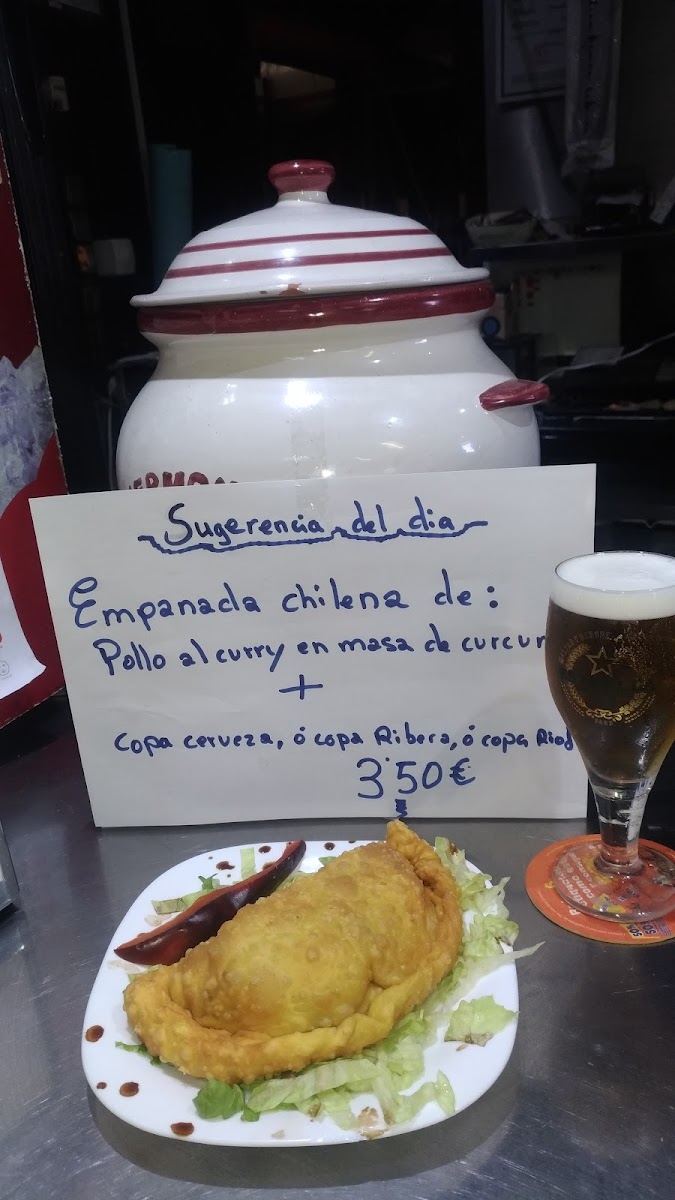 Sugerencia del dia
Empanada chilena de:
Pollo al curry en masa de curcum
+
copa cerveza, ó copa Ribera, ó copa Rioj
3'50€